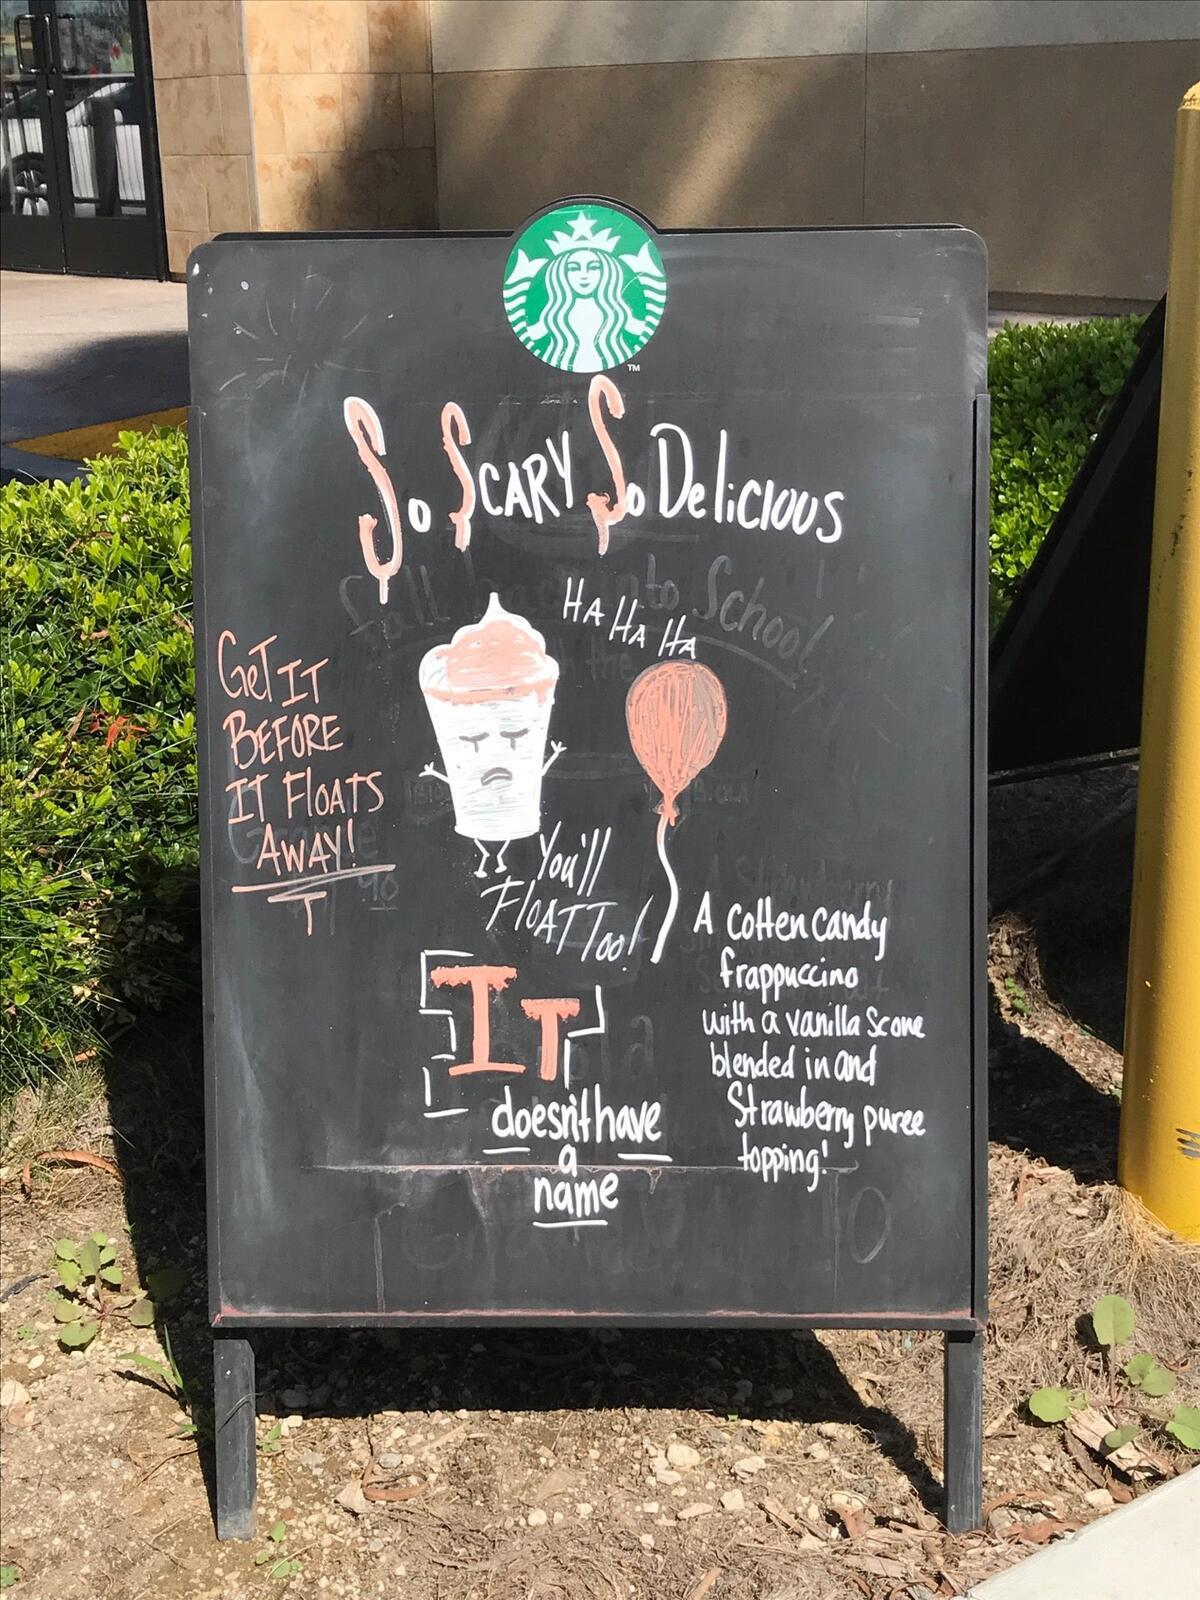 TM
So SCARY So Delicious
Fall back into School
HA HA HA
GeT IT
BEFORE
IT FLOATS
AWAY!
You'll
FLOAT Too!
IT
doesn't have
a
name
A cotten candy
frappuccino
with a vanilla scone
blended in and
Strawberry puree
topping!